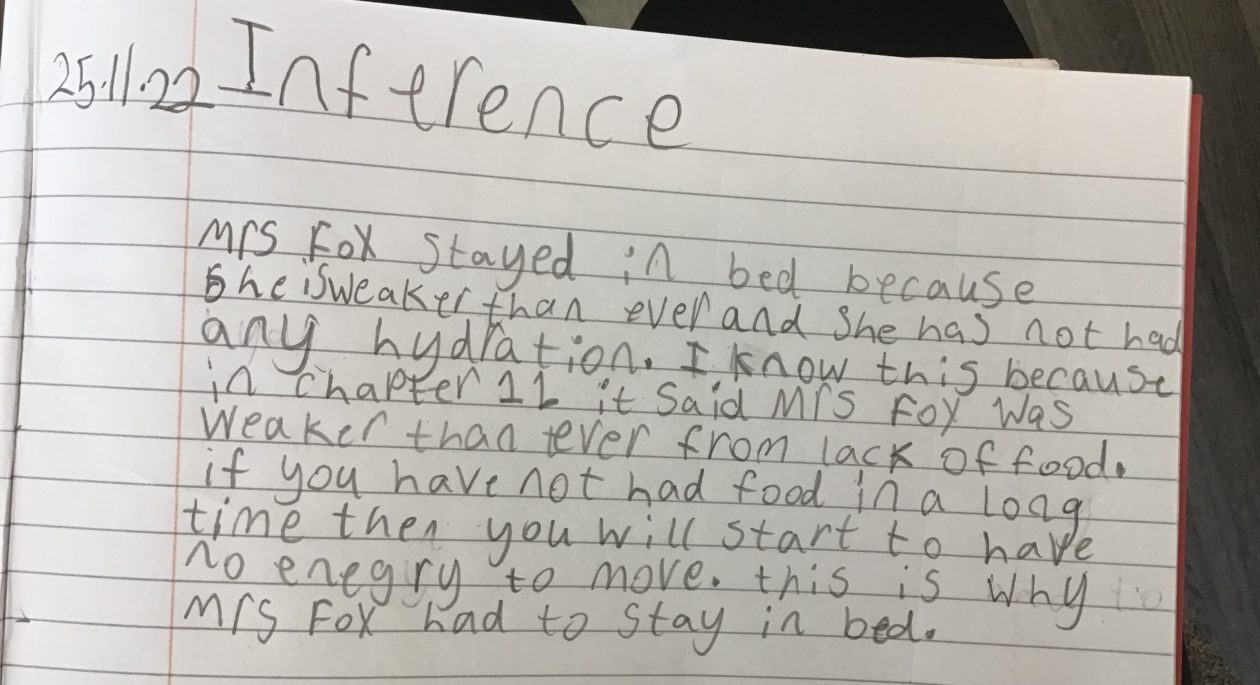 25.11.22 Inference
Mrs Fox stayed in bed because
she is weaker than ever and she has not had
any hydration. I know this because
in chapter 11 it said Mrs Fox was
weaker than ever from lack of food.
if you have not had food in a long
time then you will start to have
no enegry to move. this is why
Mrs Fox had to stay in bed.